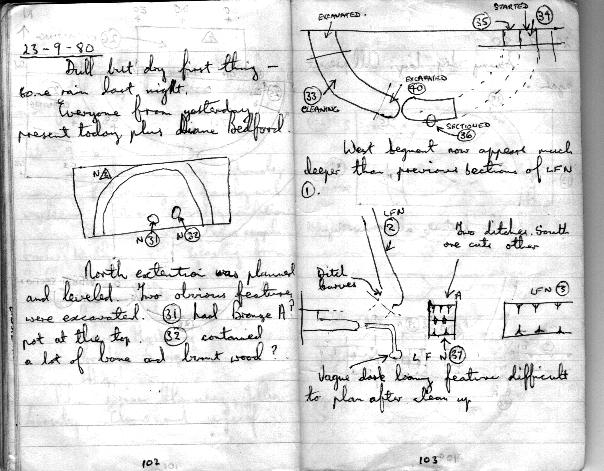 23-9-80
Dull but dry first thing -
some rain last night.
Everyone from yesterday
present today plus Duane Bedford.
N
N 31 N 32
North extention was planned
and leveled. Two obvious features
were excavated. 31 had Bronze A?
pot at the top. 32 contained
a lot of bone and burnt wood?
102
EXCAVATED.
STARTED
35 34
33
CLEANING
EXCAVATED
40
SECTIONED
36
West Segment now appears much
deeper than previous sections of LFN
1.
LFN
2
Two ditches. South
one cuts other
Ditch
curves
A
LFN 3
LFN 37
Vague dark loamy feature difficult
to plan after clean up
103